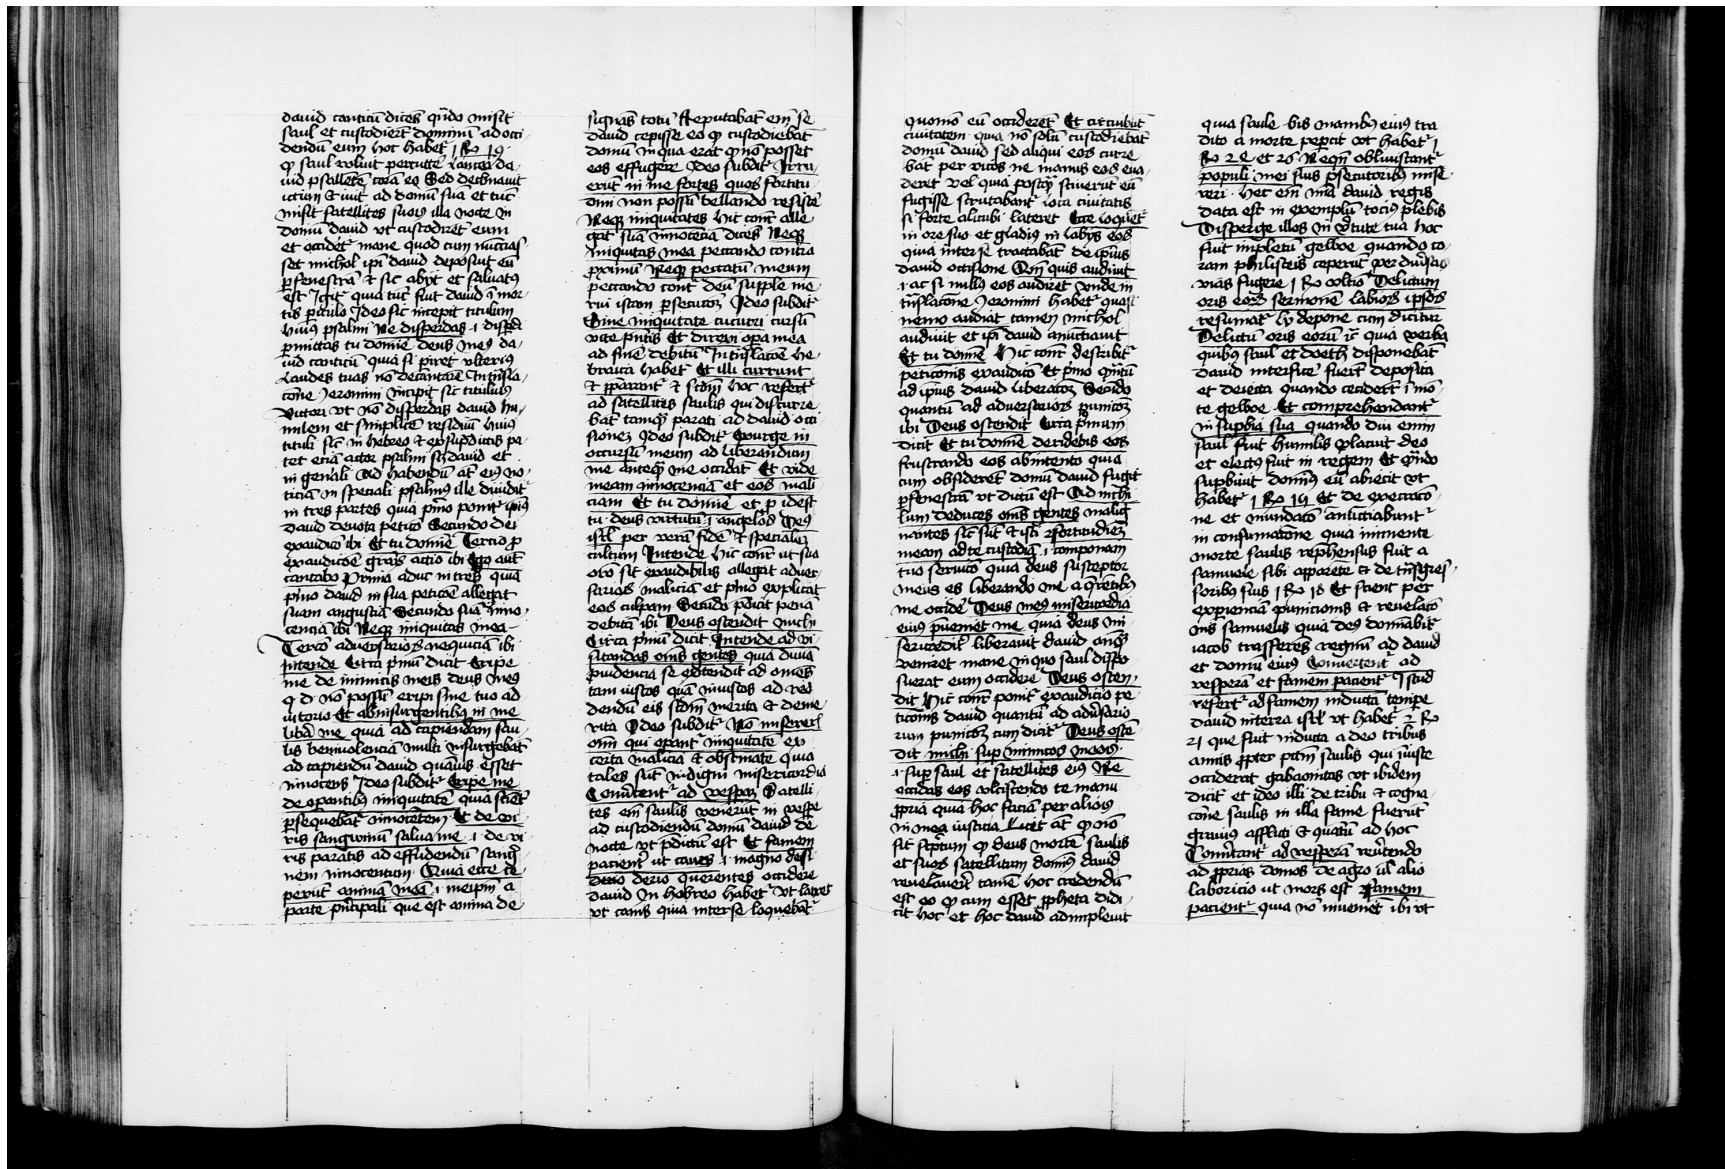 dauid canticū dicēs qn̄do misit
saul et custodiert̄ dominū ad occi
dendū eum hoc habet̄ 1 Ro 19
ꝙ saul voluit percutē lancea da
uid psallētē corā eo Sed declinauit
ictum & iuit ad domū suā et tūc
misit satellites suos illa nocte in
domū dauid vt custodirēt eum
et occidēt mane quod cum nūcias
set michol ipī dauid deposuit eū
ꝑ fenestrā & sic abijt et saluatꝰ
est Igit̄ quia tūc fuit dauid ī mor
tis ꝑiculo Ideo sic incepit titulum
huiꝰ psalmi Ne disperdas .i. disꝑdi
ꝑmittas tu domīe deus meꝰ da
uid canticū quia si ꝑiret vlteriꝰ
laudes tuas nō decantarē In trāsla
cōne Jeronimi incipit sic titulus
victori vt nō disperdas dauid hu
milem et simplicē residuū huiꝰ
tituli sic̄ in hebreo & ex supdictis pa
tet eciā actor psalmi sc̄ dauid et
in gen̄ali Ad habendū at̄ eiꝰ no
ticiā in speciali psalmꝰ ille diuidit̄
in tres partes quia p̄mo ponit̄ ipīꝰ
dauid deuota peticō Secundo dei
exaudicō ibi Et tu domīe Tercio ꝓ
exaudicōe grār̄ actio ibi Ego aut̄
cantabo Prima adhuc in tres quia
p̄mo dauid in sua peticōe allegat
suam angustiā Secundo suā īno
cenciā ibi Neqꝫ iniquitas mea
Tercō aduersarioꝝ nequiciā ibi
Intende Circa p̄mū dicit Eripe
me de inimicis meis deus meꝰ
q d nō possū eripi sine tuo ad
iutorio Et ab insurgentibꝰ in me
libā me quia ad capiendam sau
lis beniuolenciā multi insurgebāt
ad capiendū dauid quāuis esset
innocens Ideo subdit̄ Eripe me
de opantibꝰ iniquitatē quia sciēt̄
ꝑsequebāt̄ innocētem Et de vi
ris sanguinū salua me .i. de vi
ris paratis ad effūdendū sangꝭ
nem innocentum Quia ecce ce
perūt animā meā .i. meipm̄ a
parte p̄ncipali que est anima de
signās totū Reputabāt em̄ se
dauid cepisse eo ꝙ custodiebāt
domū in qua erat ꝙ nō posset
eos effugere Ideo subdit̄ Irru
erūt in me fortes quos fortitu
dini non possū bellando resistē
Neqꝫ iniquitates hic cont̄ alle
gat̄ suā innocēciā dicēs Neqꝫ
iniquitas mea peccando contra
proximū Neqꝫ peccatū meum
peccando cont̄ deū supple me
rui istam ꝑsecutōꝫ Ideo subdit̄
Sine iniquitate cucurri cursū
vite pn̄tis Et direxi opa mea
ad finē debitū In trāslacōe he
braica habet̄ Et illi currunt
& pparant̄ & scdm̄ hoc refert̄
ad satellites saulis qui discurre
bāt tamqꝫ parati ad dauid occi
sioneꝫ Ideo subdit̄ Exurge in
occursū meum ad liberandum
me anteqꝫ me occidāt Et vide
meam innocenciā et eos mali
ciam Et tu domīe et ꝓ idest
tu deus virtutū .i. angeloꝝ Deꝰ
isrl̄ per verā fidē & specialeꝫ
cultum Intende hic cont̄ ut sua
orō sit exaudibilis allegat aduer
sarioꝝ maliciā et p̄mo explicat
eos culpam Secūdo p̄dicit penā
debitā ibi Deus ostendit michi
Circa p̄mū dicit Intende ad vi
sitandas om̄s gentes quia diuīa
ꝓuidencia se extendit ad om̄es
tam iustos quā iniustos ad red
dendū eis scdm̄ merita & deme
rita Ideo subdit̄ Nō miserearī
om̄i qui opant̄ iniquitatē ex
certa malicia & obstinate quia
tales sūt indigni misericordia
Conūtent̄ ad vesperā Satelli
tes em̄ saulis venerūt in vespe
ad custodiendū domū dauid de
nocte vt p̄dictū est Et famem
pacient̄ ut canes .i. magno desi
derio querentes occidere
Dauid In hebreo habet̄ Vt latret
vt canis quia inter se loquebāt̄
quomō eū occiderēt Et circuibūt
ciuitatem quia nō solū custodiebāt
domū dauid sed aliqui eos curre
bāt per vicos ne manus eos eua
deret vel quia postqꝫ sciuerūt eū
fugisse scrutabant̄ loca ciuitatis
si forte alicubi lateret Ecce loquēt̄
in ore suo et gladiꝰ in labijs eoꝝ
quia inter se tractabāt de ipsius
dauid occisione Qm̄ quis audiuit
.i. ac si nullꝰ eos audiret vnde in
trāslacōne Jeronimi habet̄ quasi
nemo audiat tamen michol
audiuit et ipī dauid anūctiauit
Et tu domīe Hic cont̄ describit̄
peticonis exaudicō Et p̄mo qn̄tū
ad ipius dauid liberacōꝫ Secūdo
quantū ad aduersarioꝝ punicōꝫ
ibi Deus ostendit Circa p̄mum
dicit Et tu domīe deridebis eos
frustrando eos ab intento quia
cum obsiderēt domū dauid fugit
ꝑ fenestrā vt dictū est Ad nichi
lum deduces om̄s gentes malig
nantes sic̄ sūt & isti Fortitudinē
meam ad te custodiā .i. componam
tuo seruicō quia deus susceptor
meus es liberando me a q̄rētibꝰ
me occidē Deus meꝰ misericordia
eiꝰ p̄ueniet me quia deus mi
sericordit̄ liberauit dauid anqꝫ
veniret mane in quo saul dispo
suerat eum occidere Deus osten
dit Hic cont̄ ponit̄ exaudicio pe
ticonis dauid quantū ad adūsario
rum punicōꝫ cum dicit̄ Deus ostē
dit michi sup inimicos meos
.i. sup saul et satellites eiꝰ Ne
occidas eos vlciscendo te manu
ꝓpria quia hoc faciā per alios
in mea iusticia Licet at̄ ꝙ nō
sit scp̄tum ꝙ deus mortē saulis
et suoꝝ satellitum domiꝰ dauid
reuelauerit tamē hoc credendū
est eo ꝙ cum esset ꝓpheta didi
cit hoc et hoc dauid adimpleuit
quia saule bis manibꝰ eius tra
dito a morte pepercit vt habet̄ 1
Ro 24 et 26 Neqn̄ obliuiscant̄
populi mei suis ꝑsecutoribꝰ mise
reri. hec em̄ mīa dauid regis
data est in exemplū tociꝰ plebis
Disperge illos in v̄tute tua hoc
fuit impletū gelboe quando co
ram philisteis ceperūt per diuersas
vias fugere 1 Ro vltio Delictum
oris eoꝝ sermonē labioꝝ ipsoꝝ
resumat̄ ly depone cum dicitur
Delictū oris eorū ic̄ quia verba
quibꝰ saul et doeth disponebāt
dauid interficē fuerūt deposita
et deiecta quando ceciderūt ī mō
te gelboe Et comprehendant̄
in supbia sua quando diu enim
saul fuit humilis placuit deo
et electꝰ fuit in regem Et qn̄do
supbiuit domiꝰ eū abiecit vt
habet̄ 1 Ro 15 Et de execracō
ne et mendacō anūctiabunt̄
in consumatōne quia iminente
morte saulis reprehensus fuit a
samuele sibi apparēte & de trāsgres
soribꝰ suis 1 Ro 28 Et scient per
experienciā punicionis & reuelacō
om̄s samuelis quia deꝰ dominabit̄
iacob trāsferēs regnū ad dauid
et domū eiꝰ Conuertent̄ ad
vesperā et famem pacient̄ Istud
refert̄ ad famem inducta tempe
dauid in terra isrl̄ vt habet̄ 2 Ro
21 que fuit inducta a deo tribus
annis ꝓpter pctm̄ saulis qui iniuste
occiderat gabaonitas vt ibidem
dicit̄ et ideo illi de tribu & cogna
cōne saulis in illa fame fuerūt
grauiꝰ afflicti & quātū ad hoc
Conūtant̄ ad vesperā reūtendo
ad ꝓprias domos de agro ul̄ alio
laboricio ut mors est Famem
pacient̄ quia nō inueniēt ibi vt